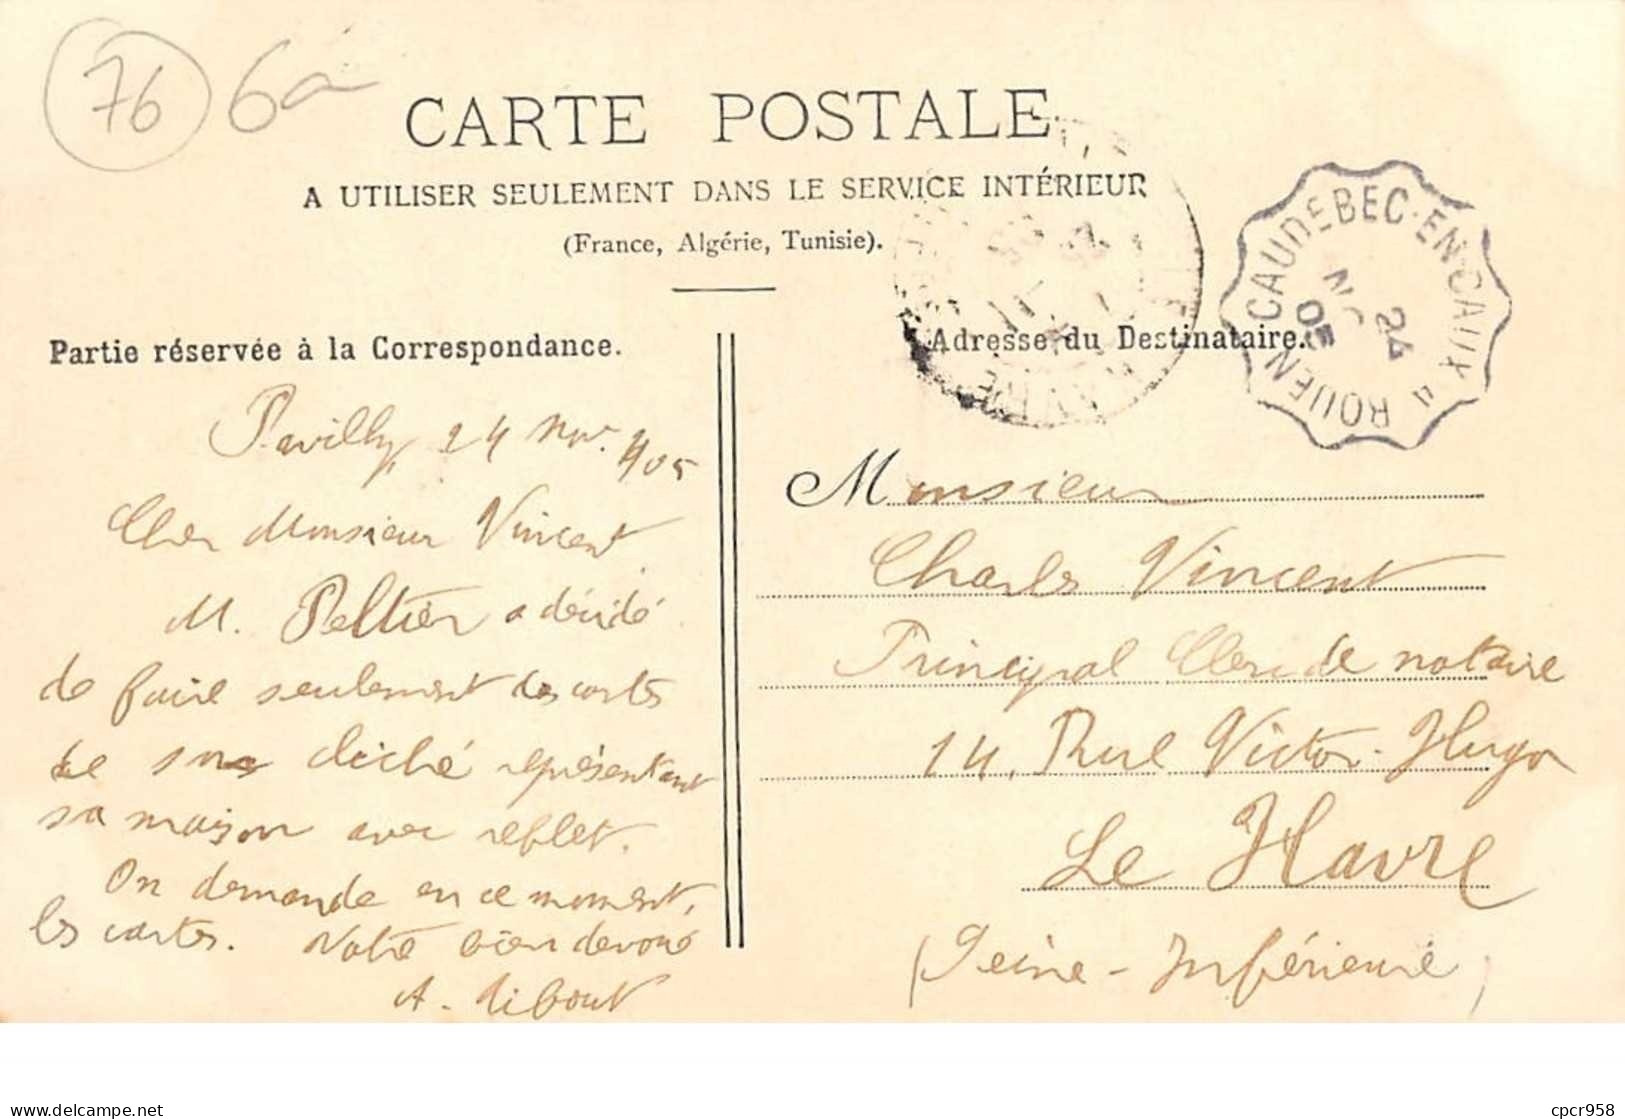 76 6a
CARTE POSTALE
A UTILISER SEULEMENT DANS LE SERVICE INTÉRIEUR
(France, Algérie, Tunisie).
CAUDEBEC-EN-CAUX A ROUEN
24 NO 05
Partie réservée à la Correspondance.
Adresse du Destinataire.
Pavilly, 24 Nov. 905
Cher Monsieur Vincent
M. Peltier a décidé
de faire seulement des cartes
de son cliché représentant
sa maison avec reflet.
On demande en ce moment,
les cartes. Votre bien dévoué
A. Ribout
Monsieur
Charles Vincent
Principal Clerc de notaire
14, Rue Victor-Hugo
Le Havre
(Seine-Inférieure)
delcampe.net
cpcr958